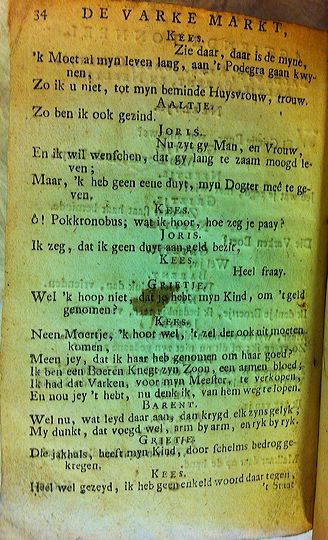 34 DE VARKE MARKT,
KEES.
Zie daar, daar is de myne,
'k Moet al myn leven lang, aan 't Podegra gaan kwy-
nen,
Zo ik u niet, tot myn beminde Huysvrouw, trouw.
AALTJE.
Zo ben ik ook gezind.
JORIS.
Nu zyt gy Man, en Vrouw,
En ik wil wenschen, dat gy lang te zaam moogd le-
ven;
Maar, 'k heb geen eene duyt, myn Dogter meê te ge-
ven.
KEES.
ô! Pokkronobus; wat ik hoor, hoe zeg je paay?
JORIS.
Ik zeg, dat ik geen duyt aan geld bezit,
KEES.
Heel fraay.
GRIETJE.
Wel 'k hoop niet, dat je hebt myn Kind, om 't geld
genomen?
KEES.
Neen Moertje, 'k hoor wel, 't zel der ook uit moeten
komen,
Meen jey, dat ik haar heb genomen om haar goed?
Ik ben een Boeren Knegt zyn Zoon, een armen bloed;
Ik had dat Varken, voor myn Meester, te verkopen,
En nou jey 't hebt, nu denk ik, van hem weg te lopen.
BARENT.
Wel nu, wat leyd daar aan, dan krygd elk zyns gelyk;
My dunkt, dat voegd wel, arm by arm, en ryk by ryk.
GRIETJE.
Die jakhals, heeft myn Kind, door schelms bedrog ge-
kregen.
KEES.
Heel wel gezeyd, ik heb geen enkeld woord daar tegen,
't Staat